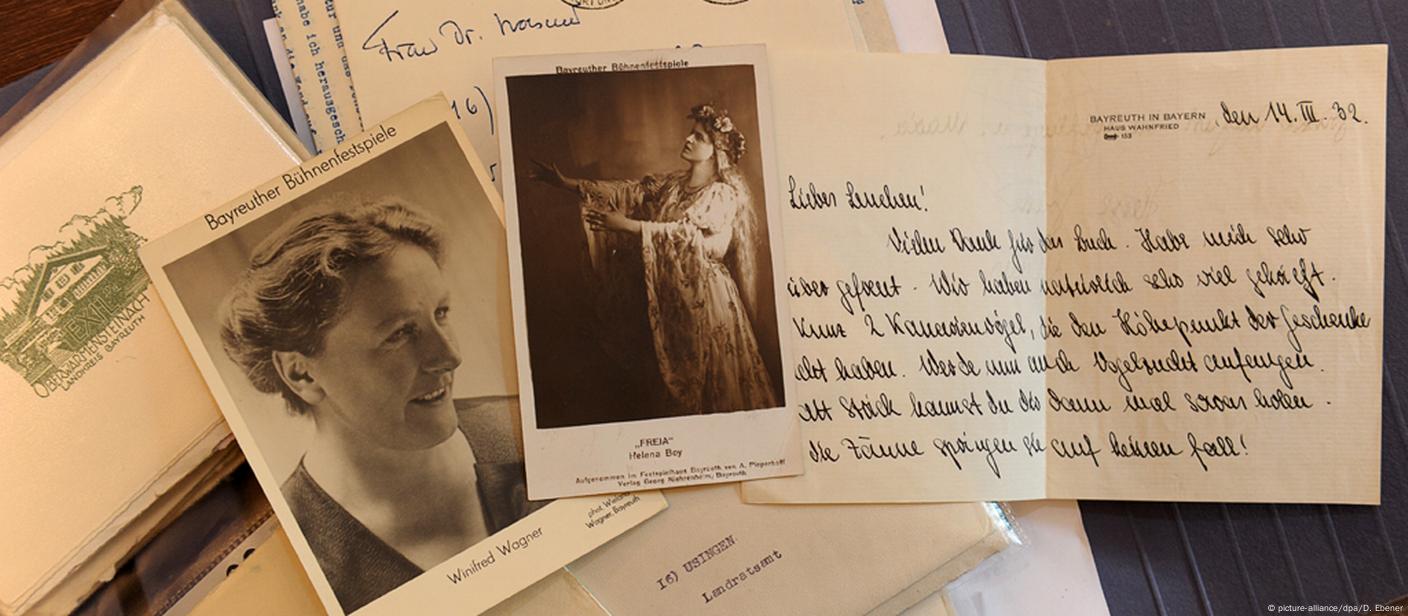 Frau Dr.
16)
Bayreuther Bühnenfestspiele
Winifred Wagner
phot. Wieland
Wagner, Bayreuth
Bayreuther Bühnenfestspiele
„FREIA"
Helena Boy
Aufgenommen im Festspielhaus Bayreuth von A. Pieperhoff
Verlag Georg Niehrenheim, Bayreuth
EXIL
OBERWARMENSTEINACH
LANDKREIS BAYREUTH
habe ich herausgesch
BAYREUTH IN BAYERN , den 14. III. 32.
HAUS WAHNFRIED
153
Liebes Lenchen!
Vielen Dank für das Buch. Habe mich sehr
über gefreut. Wir haben natürlich sehr viel
2 Kanarienvögel, die den Höhepunkt der Geschenke
haben. Werde nun auch Vogelzucht anfangen.
Stück kannst du dann mal holen.
die springen sie auf keinen Fall!
16) USINGEN
Landratsamt
© picture-alliance/dpa/D. Ebener